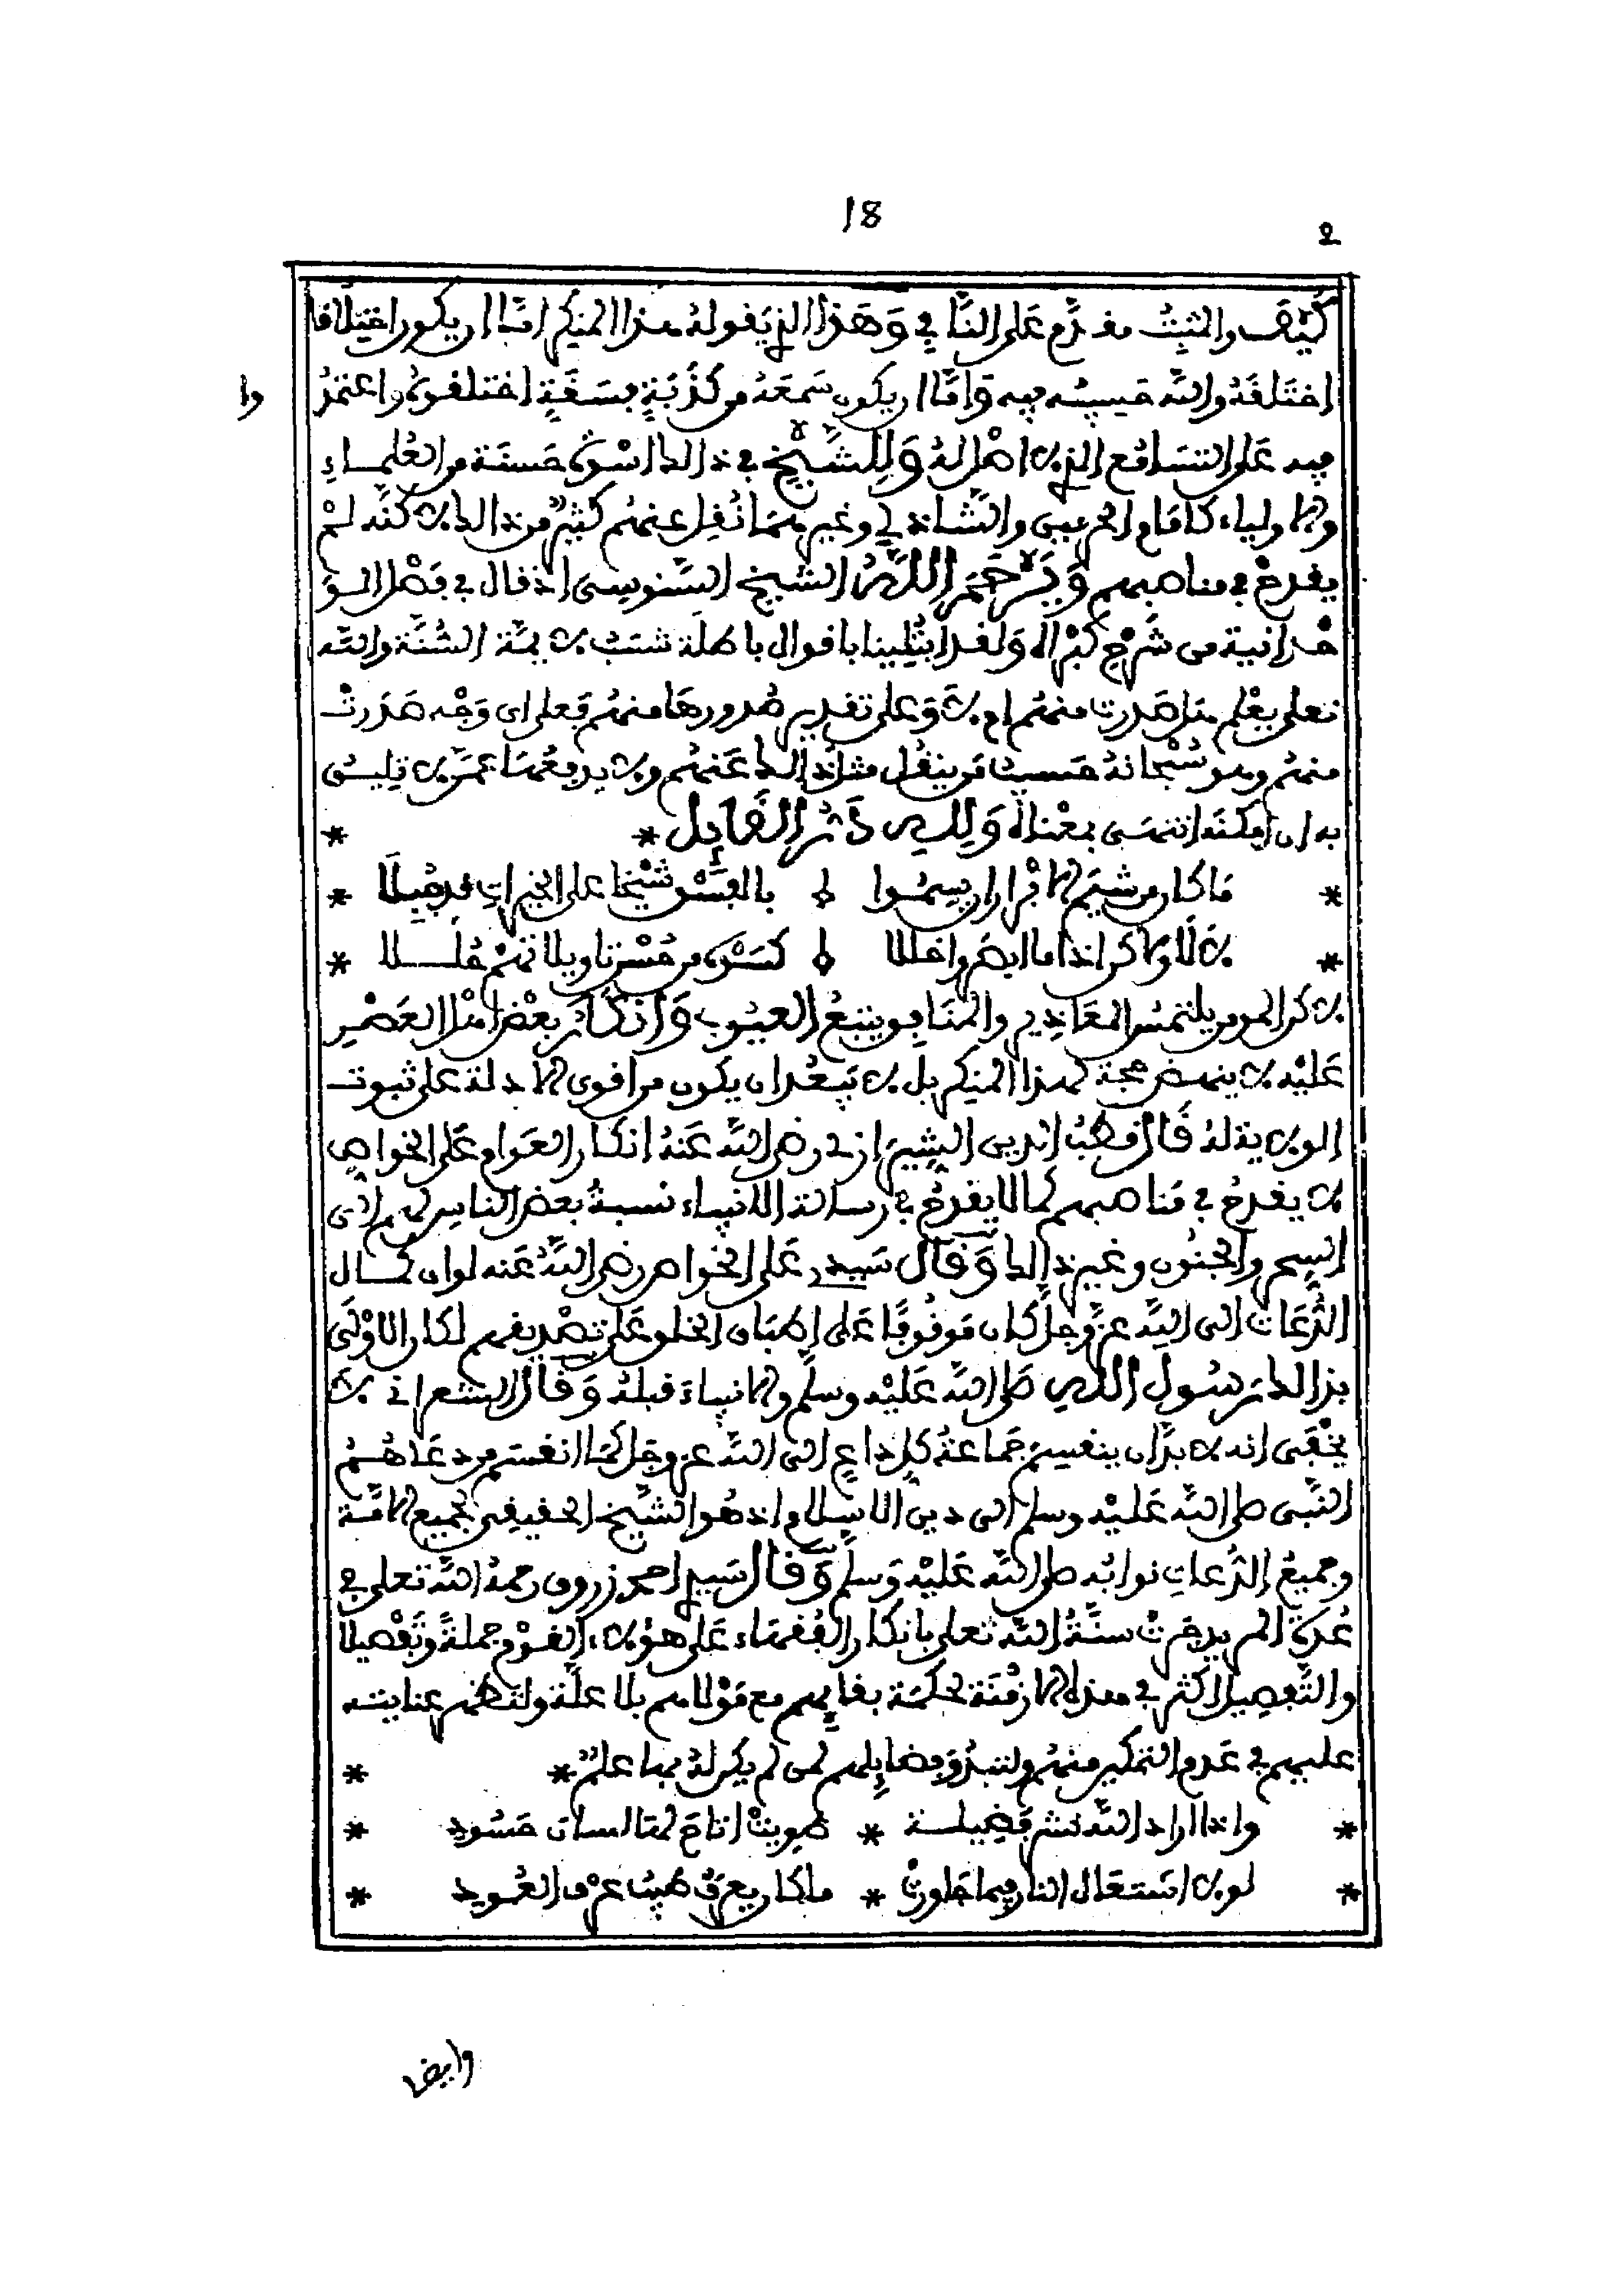 18
2
كَيْفَ والمثبِتُ مقدّم عَلى النَّافي وَهَذا الذي يَقولهُ هذا المنكر امّا ان يكون اختِلَاقا
اختَلَقَهُ والله حَسيبُه فيه وَامّا ان يكون سَمعَهُ من كذَبَةٍ فسَقَةٍ اختلقوهُ واعتمَدُ
وا
فيه عَلى التسَامُع الذي لا اصْل لهُ وَلِلشَّيْخِ في ذالك اسْوة حَسنَة من العُلمـاء
والاولياء كامَام الحرمين والشاذلي وغيرهمَا نُقِل عنهُم كثيرٌ من ذالك لاكنّه لمْ
يقدحْ في مناصبهم وَيَرْحَمُ اللَّهُ الشيخ السّنوسى اذ قال في فَصْل الـوَ
حْدانية من شَرْح كبْراه وَلقد ابْتُلينا باقوال باطلَة نسَبت لايمّة السُّنّة والله
تعلى يعْلم هل صَدرت منهُم ام لا وَعلى تقدير صُدورهَا منهُم فَعلى اى وَجْه صَدَرتْ
منهُم وهو سُبْحانهُ حَسيبُ من ينقُل مثل ذالك عَنهُم ولا يرفعُهَا عمّن لا تليـق
به ان امكنَه انتهَى بمعْناه وَلِلهِ دَرُّ القَائِل * *
* مَا كان من شيَم الابْرار ان يسِمُوا بالفِسْق شَيْخا على الخيرات قد جُبِلَا *
* لا لَا ولاكن اذا ما ابصَروا خللا كسَوهُ من حُسْن تاويلاتهمْ حُلَـلا *
لاكن المومن يلتمسُ المعَاذير والمنَافِق يتبَعُ العيُوب وَانْكَارُ بعْض اهْل العَصْرِ
عَليْه لا ينهـض حجة لهذا المنكر بل لا يَبعُد ان يكون من اقوى الادلة على ثبوت
الولاية لهُ قَال قطبُ الدين الشِيرَازى رضى الله عَنهُ انكار العَوام عَلى الخواص
لا يقدحُ في مَناصبهم كما لا يقدحُ في رسالة الانبياء نسبةُ بعض الناس لهم الى
السِحر والجنُون وغير ذالك وَقَال سَيدى عَلى الخواص رضى اللهُ عَنه لو ان كمـال
الدُّعَاة الى الله عزّ وجلّ كان مَوقُوفًا عَلى اطبَاق الخلق عَلى تصْديقهم لكان الاوْلَى
بذالك رَسُول اللهِ صَلى الله عَليْه وسلّم والانبياء قبلهُ وَقَال الشعرانى لا
يخْفَى انه لا بدّ ان ينقسِمَ جمَاعَةُ كل داعٍ الى الله عز وجَل كمَا انقسَم من دعَاهُـم
النّبى صلى الله عَليْه وسلم الى دين الاسْلام اذ هُو الشيْخ الحقيقى لجميع الامّـة
وجميعُ الدُّعاة نوابُه صلى الله عَليْه وَسلَّم وَقَال سَيدى احمد زروق رحمهُ الله تعلى في
عُدة المريد جرتْ سنّةُ الله تعلى بانكار الفُقهَاء عَلى هؤلاء القوْم جملةً وتَفْصيلا
والتّفصِيل اكثر في هذه الازمنَة لحكمَة بقائهم مع مَوْلاهم بلا علّة ولتظهر عنايته
عليهم في عَدم التمكين منهُم ولتبدُوَ فضائلهم لمن لم يكن لهُ بها علمٌ * *
* واذا اراد الله نشر فَضِيلـة * طُوِيَتْ اتاحَ لهَا لسان حَسُود *
* لولا اشتعَال النار فيما جَاورتْ * ما كان يعرَفُ طيبُ عَرْف العُـود *
وايض